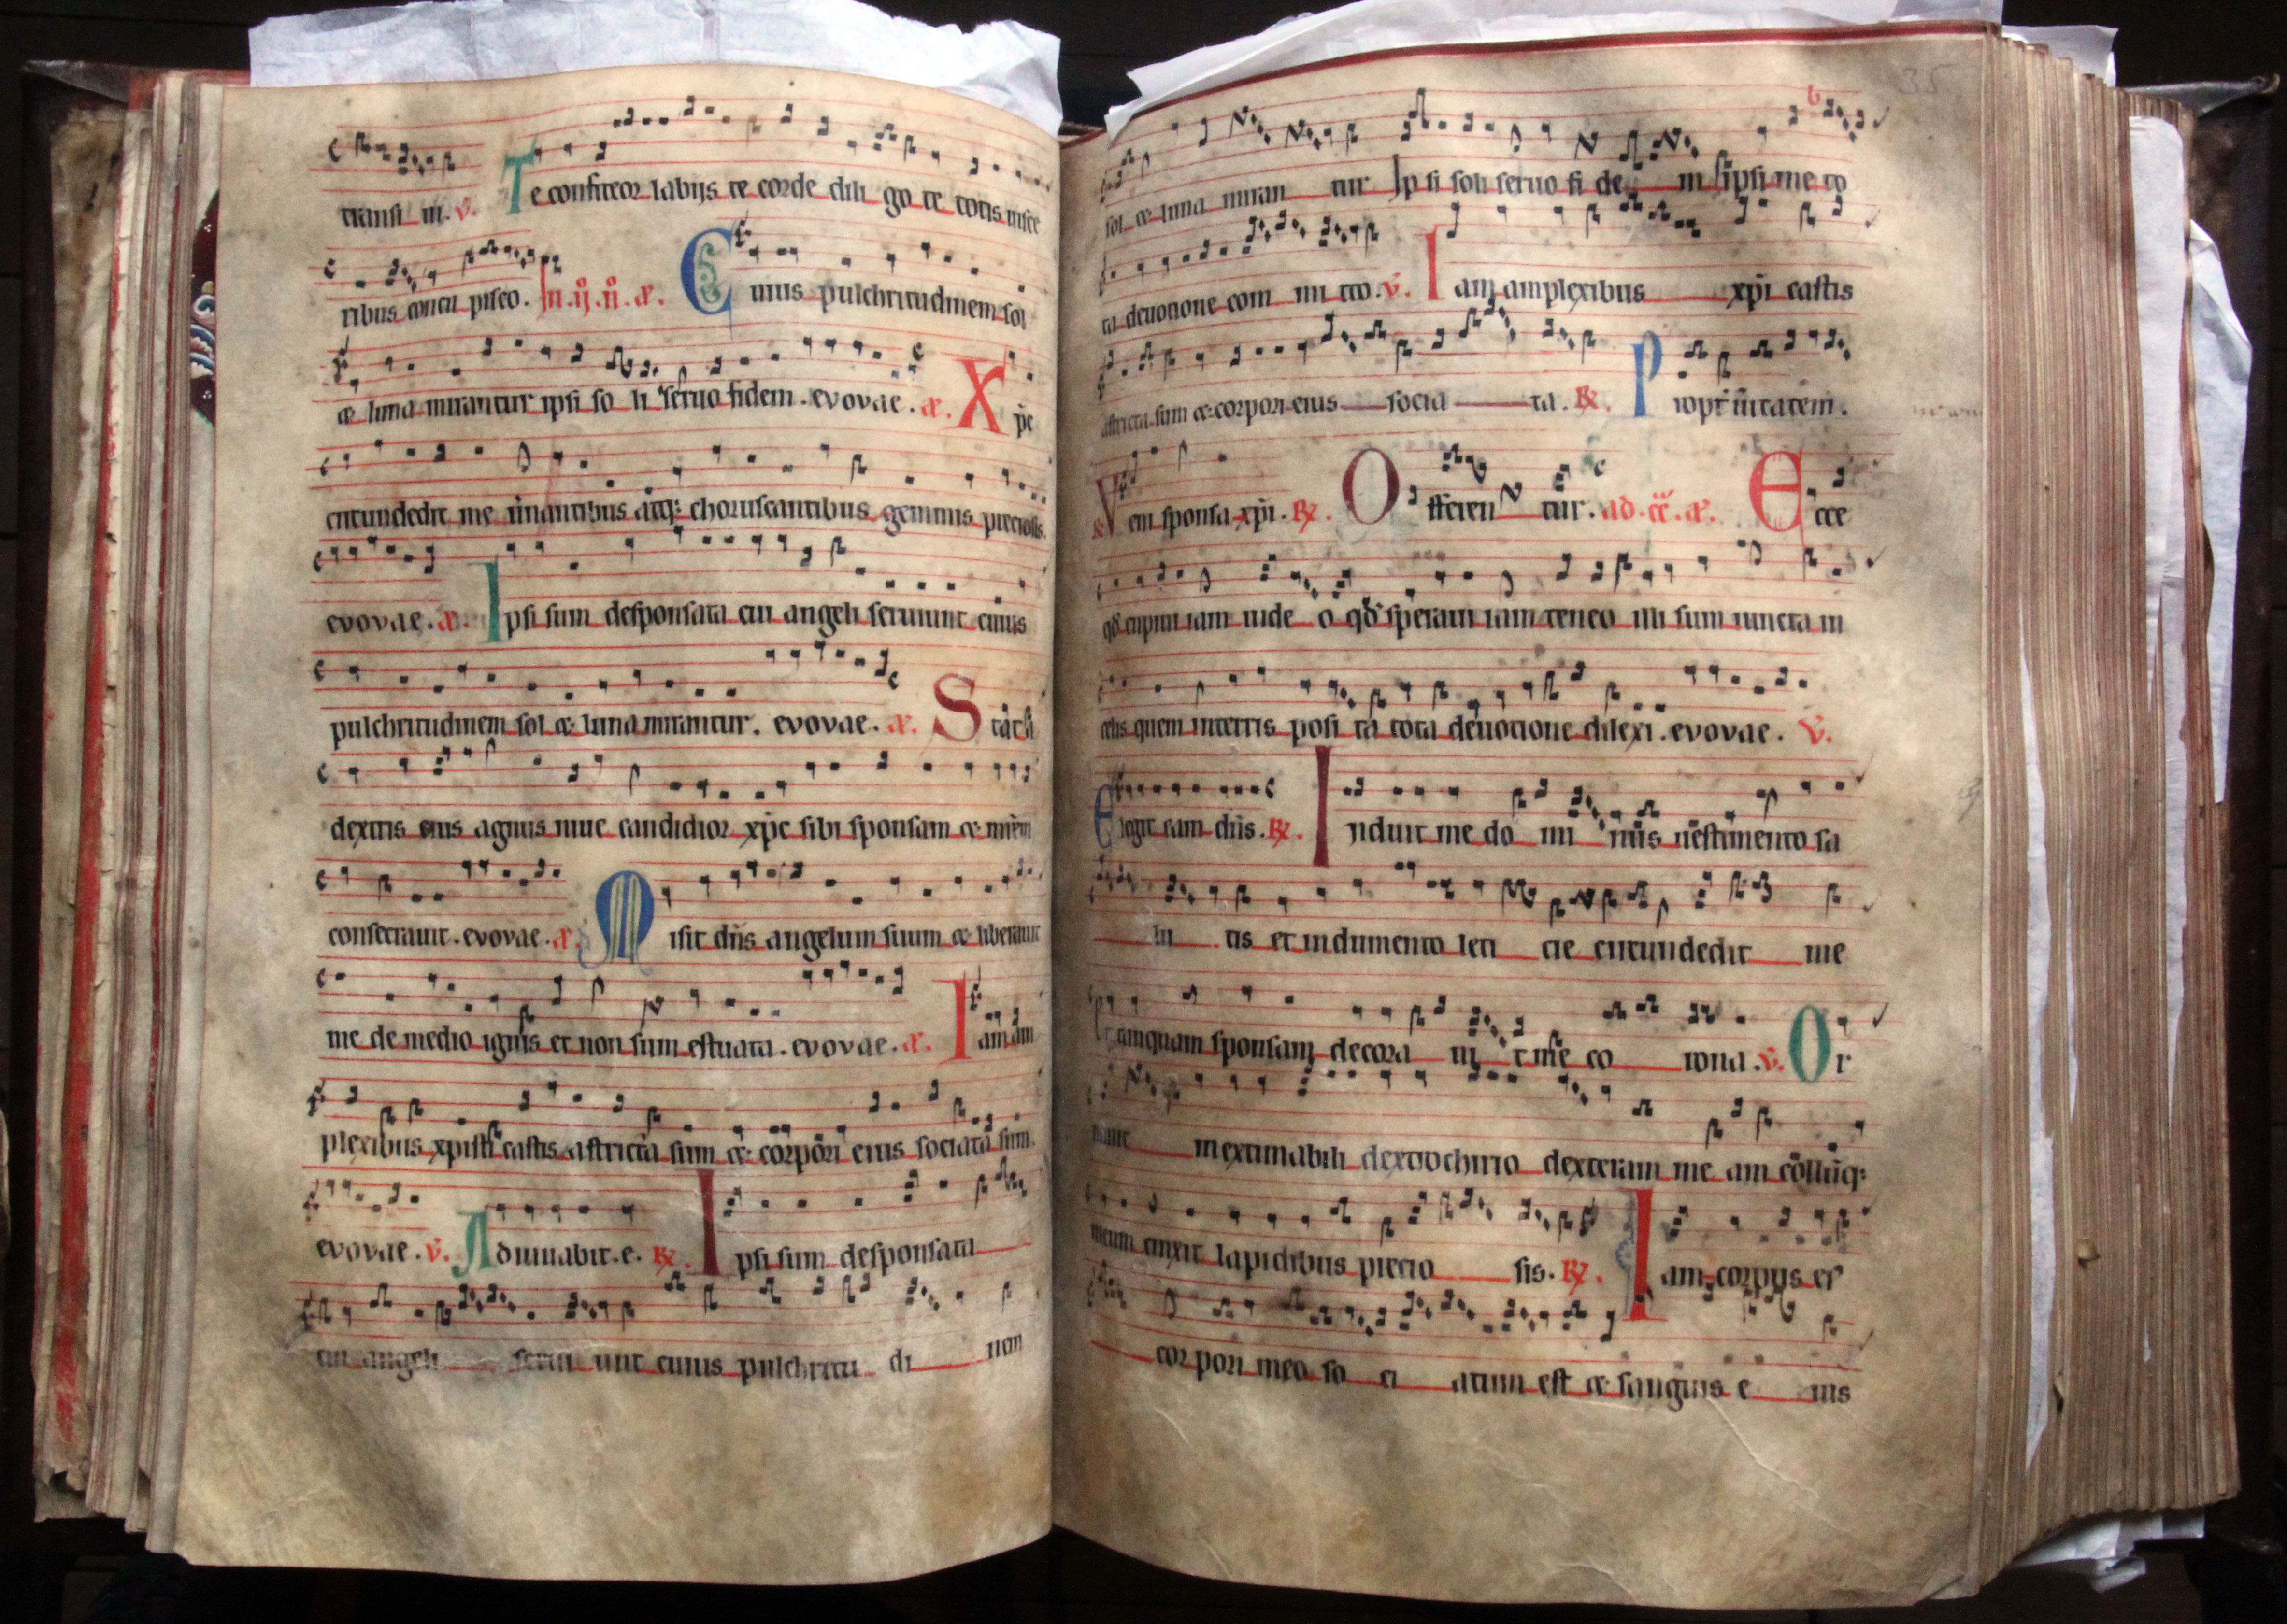 transi in. v. Te confiteor labijs te corde dili go te totis visce
ribus concu pisco. In .iij. n̄. a. Cuius pulchritudinem sol
et luna mirantur ipsi so li seruo fidem. evovae. a. Xp̄c
circundedit me u̇nantibus atq: choruscantibus gemmis preciosis.
evovae. a. Ipsi sum desponsata cui angeli seruiunt cuius
pulchritudinem sol et luna mirantur. evovae. a. Stat a
dextris eius agnus niue candidior xp̄c sibi sponsam et mr̄em
consecrauit. evovae. a. Misit dn̄s angelum suum et liberauit
me de medio ignis et non sum estuata. evovae. a. Iam am
plexibus xpisti castis astricta sum et corpori eius sociata sum.
evovae. v. Adiuuabit. e. R. Ipsi sum desponsata
cui angeli serui unt cuius pulchritu di nem
35
sol et luna miran tur Ipsi soli seruo fi de m ipsi me to
ta deuotione com mi tto. v. Iam amplexibus xp̄i castis
astricta sum et corpori eius socia ta. R. Propt̄ ūitatem.
Veni sponsa xp̄i. R. Offeren tur. ad. a. Ecce
qd̄ cupiui iam uide o qd̄ speraui iam teneo illi sum iuncta in
celis quem in terris posi ta tota deuotione dilexi. evovae. v.
Elegit eam dn̄s. R. Induit me do mi nus uestimento sa
lu tis et indumento leti cie circundedit me
et tanquam sponsam decora uit me co rona. v. Or
nauit inextimabili dextrochirio dexteram me am & collūq:
meum cinxit lapidibus precio sis. R. Iam corpus ei'
corpori meo so ci atum est et sanguis e ius